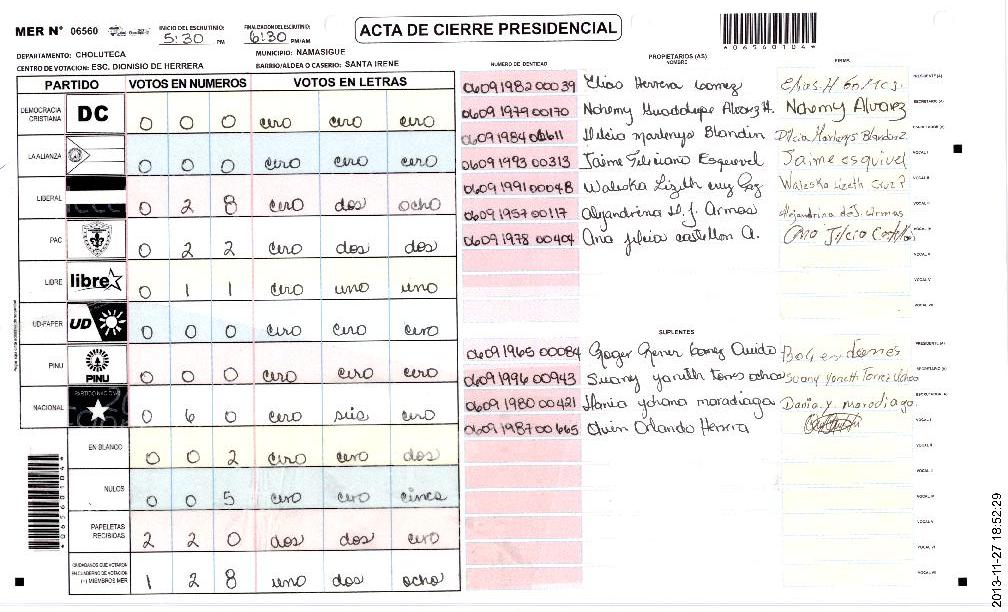 MER N° 06560
INICIO DEL ESCRUTINIO:
5:30 PM
FINALIZACION DEL ESCRUTINIO:
6:30 PM/AM
ACTA DE CIERRE PRESIDENCIAL
*06560104*
DEPARTAMENTO: CHOLUTECA
MUNICIPIO: NAMASIGUE
CENTRO DE VOTACION: ESC. DIONISIO DE HERRERA
BARRIO/ALDEA O CASERIO: SANTA IRENE
PARTIDO VOTOS EN NUMEROS VOTOS EN LETRAS
DEMOCRACIA CRISTIANA DC 0 0 0 cero cero cero
LA ALIANZA 0 0 0 cero cero cero
LIBERAL 0 2 8 cero dos ocho
PAC 0 2 2 cero dos dos
LIBRE libre 0 1 1 cero uno uno
UD-FAPER UD 0 0 0 cero cero cero
PINU PINU 0 0 0 cero cero cero
NACIONAL PARTIDO NACIONAL 0 6 0 cero seis cero
EN BLANCO 0 0 2 cero cero dos
NULOS 0 0 5 cero cero cinco
PAPELETAS RECIBIDAS 2 2 0 dos dos cero
CIUDADANOS QUE VOTARON EN CUADERNO DE VOTACION (+) MIEMBROS MER 1 2 8 uno dos ocho
*06560104*
NUMERO DE IDENTIDAD PROPIETARIOS (AS) NOMBRE FIRMA
0609 1982 00039 Elias Herrera Gomez PRESIDENTE (A)
0609 1979 00170 Nohemy Guadalupe Alvarez H. Nohemy Alvarez SECRETARIO (A)
0609 1984 Dilcia Marlenys Blandin Dilcia Marlenys Blandin ESCRUTADOR (A)
0609 1993 00313 Jaime Feliciano Esquivel Jaime esquivel VOCAL I
0609 1991 00048 Waleska Lizeth Waleska Lizeth Cruz P VOCAL II
0609 1957 00117 Alejandrina d. J. Armas Alejandrina de J. Armas
0609 1978 00404 Ana Julcia castellon A.
SUPLENTES
0609 1965 00084 Roger Gomez PRESIDENTE (A)
0609 1996 00943 Suany yaneth torres ochoa Suany Yaneth Torres Ochoa SECRETARIO (A)
0609 1980 00421 yohana maradiaga Dania y. maradiaga
0609 1987 00665 Orlando Herrera VOCAL I
2013-11-27 18:52:29